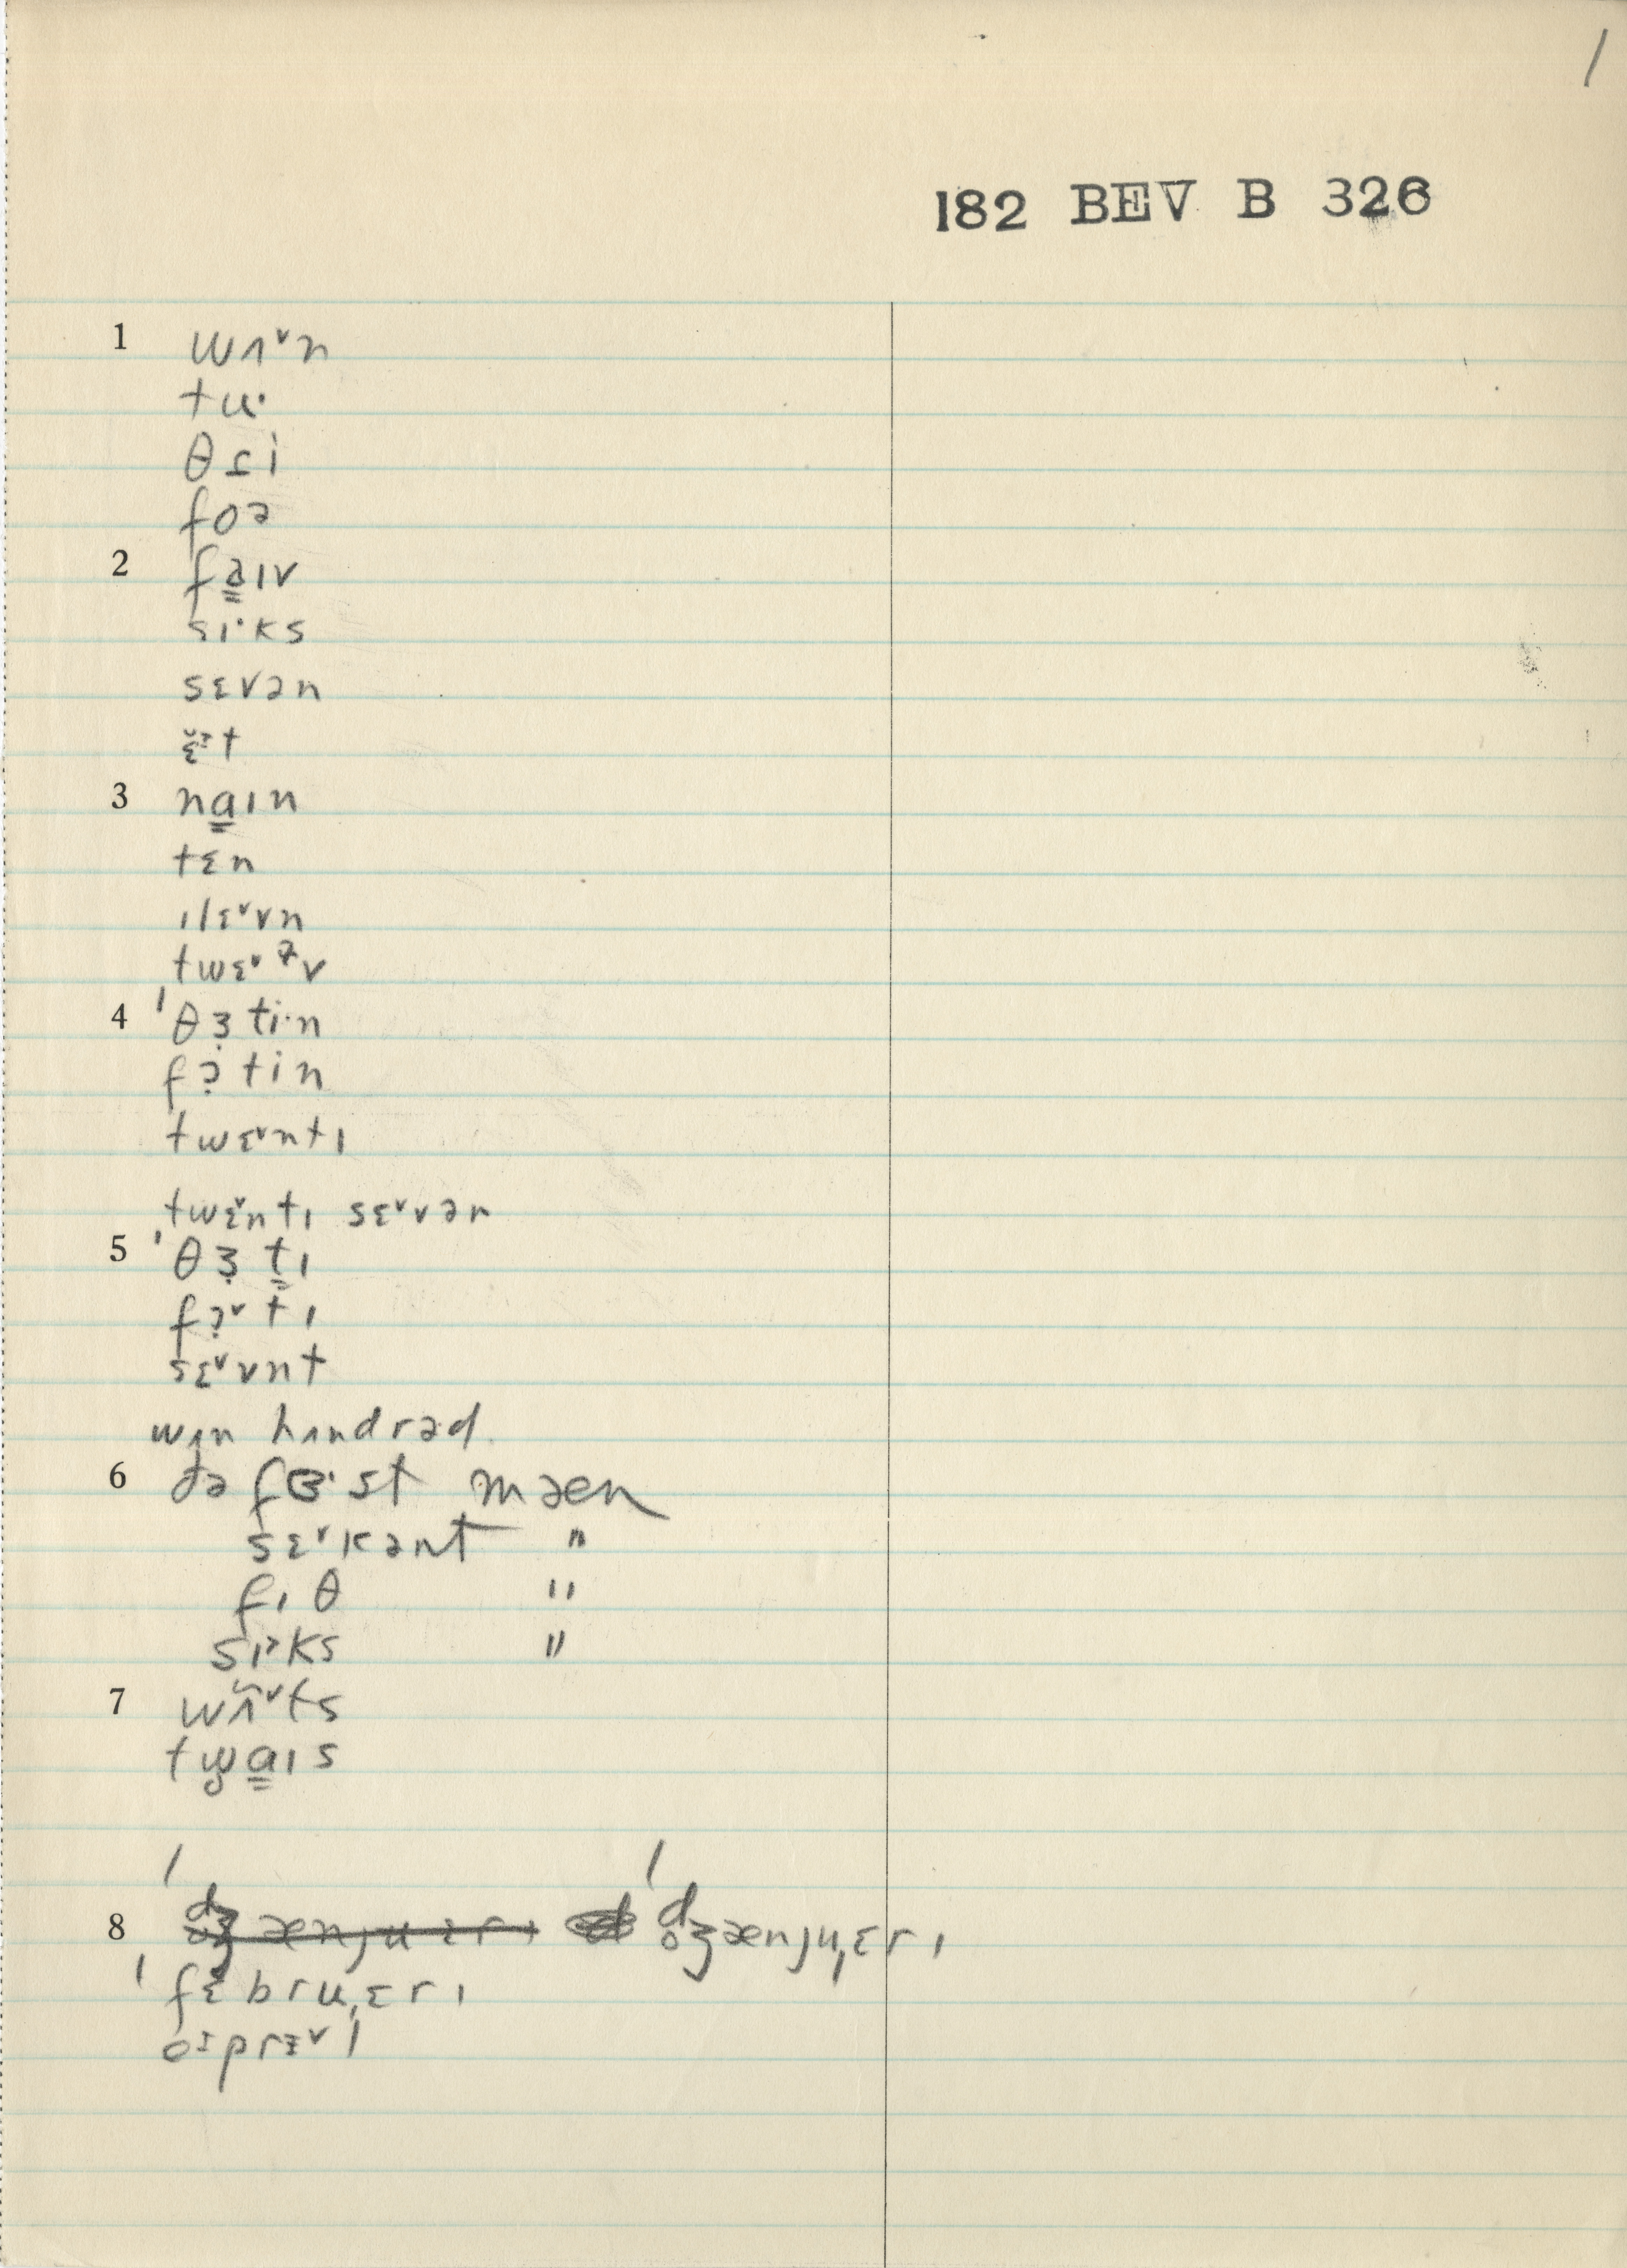 1
182 BEV B 326
1 wʌ˅n
tu·
θɾi
foə
2 fa̳ɪv
sɪ·ks
sɛvən
t
3 na̳ɪn
tɛn
ɪlɛ˅vn
twɛ˅ɫv
4 ˈθɜ̣ti·n
fɔ̣tin
twɛ˅ntɪ
twɛ̌ntɪ sɛ˅vən
5 ˈθɜ̣t̳ɪ
fɔ̣˅tɪ
sɛ˅vnt
wʌn hʌndrəd
6 ðə fɜ·st mæn
sɛ˅kənt "
fɪθ "
sɪˀks "
7 wʌ̃˅ts
twa̳ɪs
8 ˈdʒænjuɛrɪ ˈd̥ʒænjuˌɛrɪ
ˈfɛbruˌɛrɪ